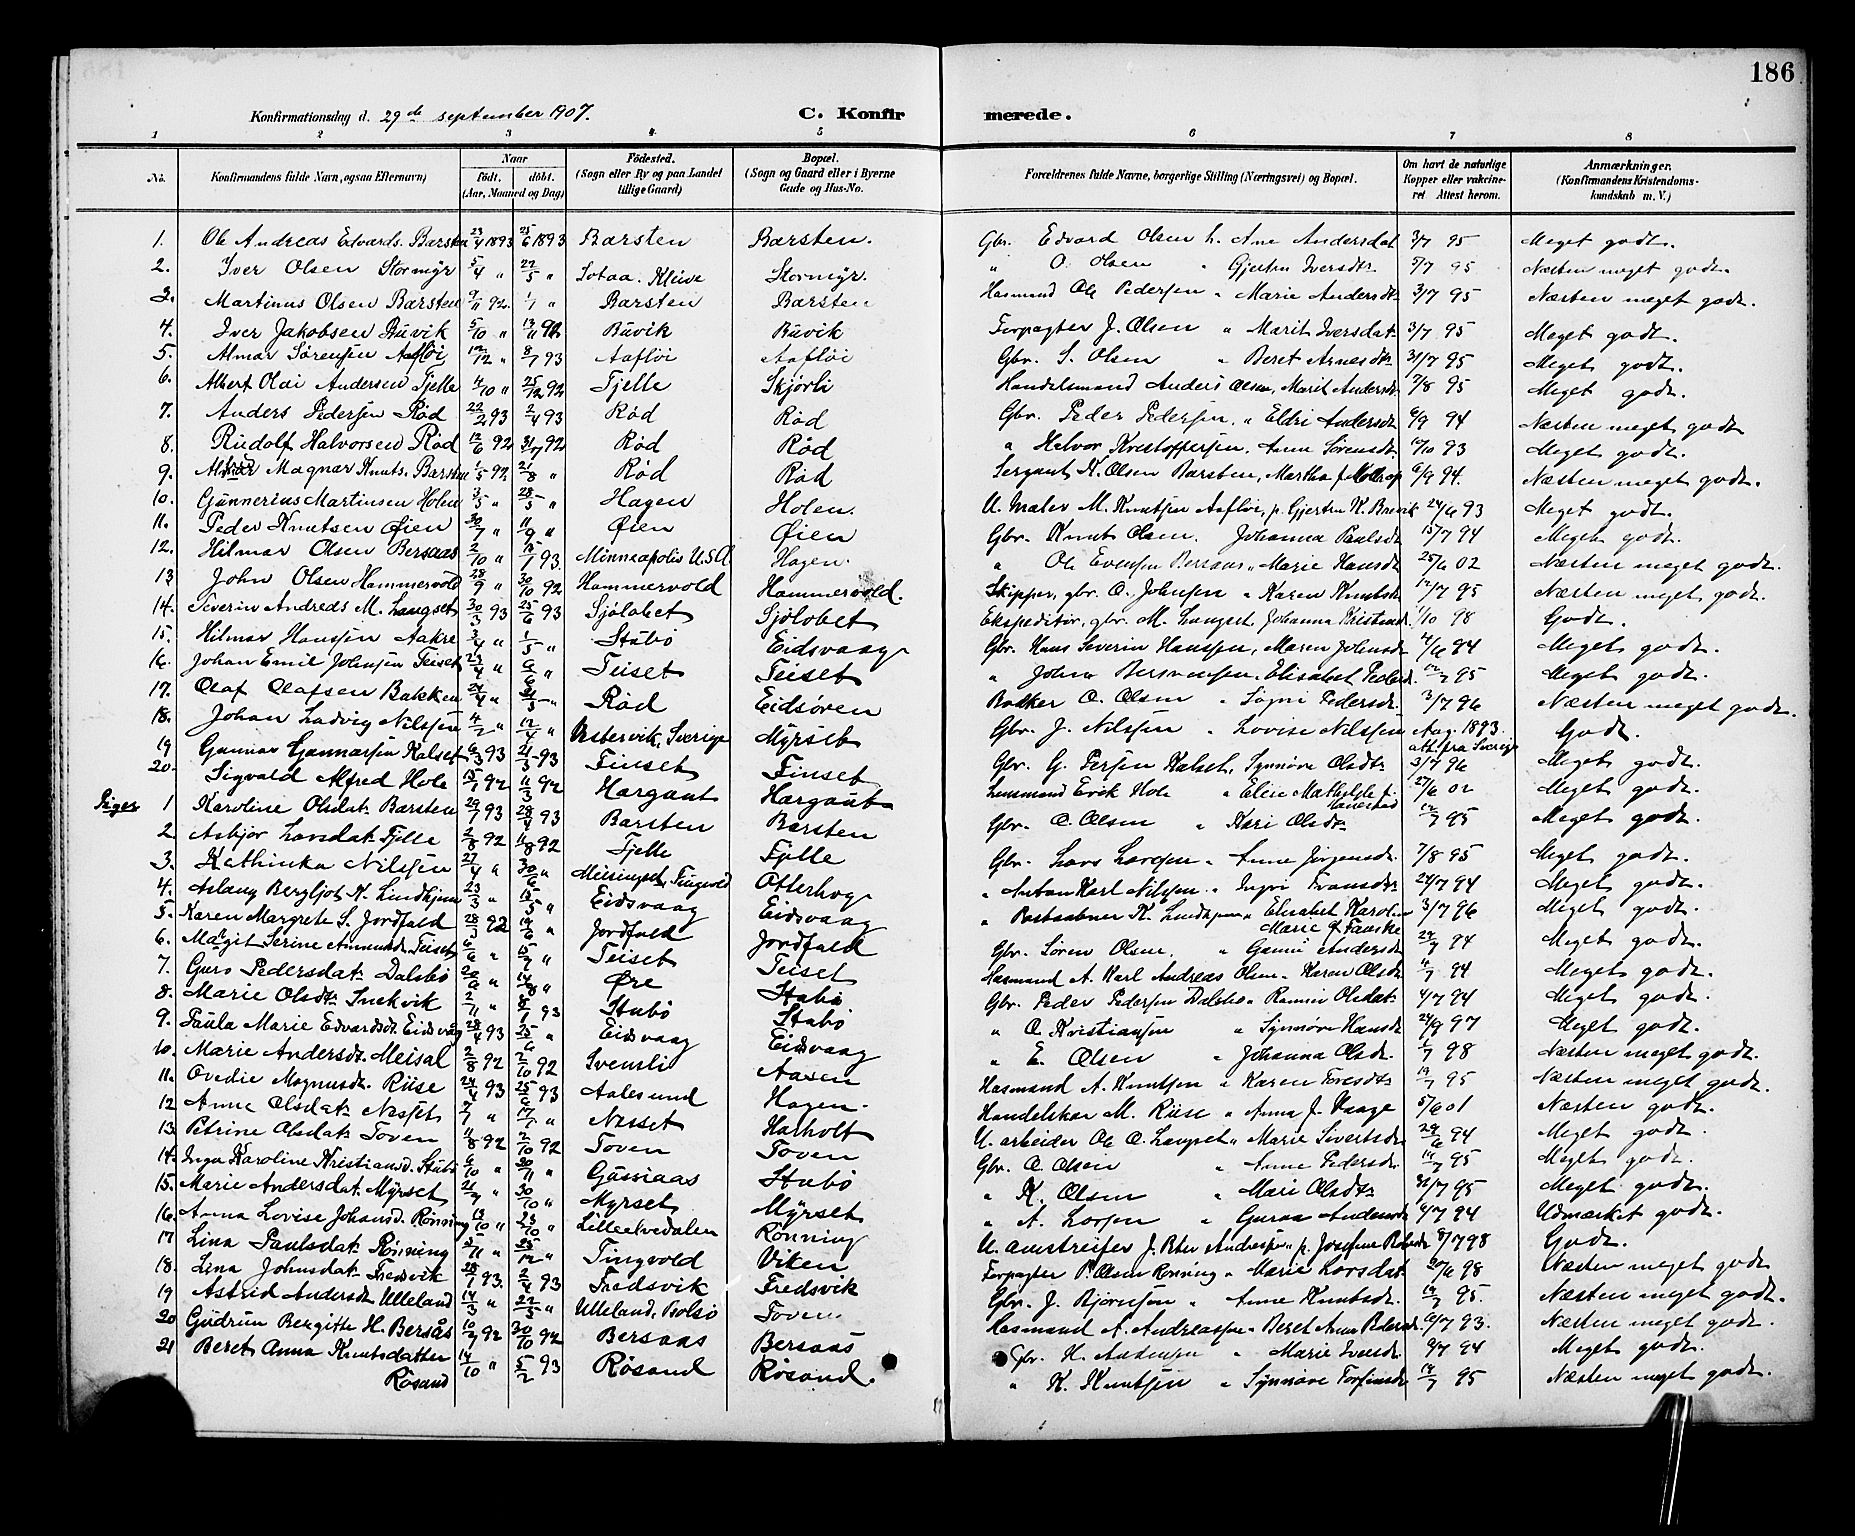 186
Konfirmationsdag d. 29de september 1907.
C. Konfirmerede.
1 2 3 4 5 6 7 8
No. Konfirmandens fulde Navn, ogsaa Efternavn) Naar Født. døbt. (Aar, Maaned og Dag) Fødested. (Sogn eller By og paa Landet tillige Gaard) Bopæl. (Sogn og Gaard eller i Byerne Gade og Hus-No. Forældrenes fulde Navne, borgerlige Stilling (Næringsvei) og Bopæl. Om havt de naturlige Kopper eller vakcineret Attest herom. Anmærkninger. (Konfirmandens Kristendomskundskab m. V.)
1. Ole Andreas Edvards. Barsten 23/4 1893 25/6 1893 Barsten Barsten. Gbr. Edvard Olsen h. Ane Andersdat 3/7 95 Meget godt.
2. Iver Olsen Stormyr 5/4 " 22/5 " Sotaa. Kleive Stormyr. " O. Olsen " Gjertru Iversdtr. 5/7 95 Næsten meget godt.
3. Martinus Olsen Barsten 9/11 92. 1/1 " Barsten Barsten Husmand Ole Pedersen " Marie Andersdtr 3/7 95 Næsten meget godt.
4. Iver Jakobsen Buvik 5/10 " 13/11 92 Buvik Buvik Forpagter J. Olsen " Marit Iversdat. 3/7 95 Meget godt.
5. Almar Sørensen Aafløi 12/12 " 8/1 93 Aafløi Aafløi Gbr. S. Olsen " Beret Arnesdtr 31/7 95 Meget godt.
6. Albert Olai Andersen Tjelle 4/10 " 25/12 92 Tjelle Skjørli Handelsmand Anders Olsen, Marit Andersdt 7/8 95 Meget godt.
7. Anders Pedersen Rød 22/2 93 2/4 93 Rød Rød Gbr. Peder Pedersen " Eldri Andersdt 6/9 94 Næsten meget godt
8. Rudolf Halvorsen Rød 12/6 92 31/7 92 Rød Rød " Halvor Kristoffersen, Anne Sørensdt. 10/10 93 Meget godt.
9. Magnar Knuts. Barsten 1/5 92 21/8 " Rød Rød Sergant K. Olsen Barsten, Martha f. 6/9 94. Næsten meget godt.
10. Gunnerius Martinsen Holen 3/5 " 28/5 " Hagen Holen. U. Maler M. Knutsen Aafløi, p. Gjertru K. Buvik 24/6 93 Meget godt.
11. Peder Knutsen Øien 30/7 " 11/9 " Øien Øien Gbr. Knut Olsen. Johanna Paulsdt 15/7 94 Meget godt.
12. Hilmar Olsen Bersaas 2/10 " 15/1 93. Minneapolis U.S.A. Hagen. " Ole Evensen Bersaas " Marie Hansdt 25/6 02 Næsten meget godt.
13 John Olsen Hammervold 28/9 " 30/10 92 Hammervold Hammervold. Skipper, gbr. O. Johnsen " Karen Knutsdt 12/7 95 Næsten meget godt.
14. Severin Andreas M. Langset 30/3 93 25/6 93 Sjølabet Sjølobet Ekspeditør, gbr. M. Langset Johanna Kristensd. 1/10 98 Godt.
15. Hilmar Hanssen Aakre 3/4 " 1/5 " Stubø Eidsvaag Gbr. Hans Severin Hanssen, Maren Johnsdt 4/6 94 Meget godt.
16. Johan Emil Johnsen Teiset 23/4 " 6/6 " Teiset Teiset " Johan Elisabet Pedersd. 12/7 95 Meget godt.
17. Olaf Olafsen Bakken 24/4 " 21/5 " Rød Eidsøren Bakker O. Olsen " Sogni Pedersdt. 3/7 96 Næsten meget godt.
18. Johan Ludvig Nilssen 4/2 " 12/4 " Vestervik, Sverige Myrset Gbr. J. Nilssen " Lovise Nilssen Aug. 1893. att. fra Sverige Godt.
19 Gunnar Gunnarsen Kalset 6/3 93 21/3 93 Finset Finset Gbr. G. Persen Kalset, Synnøve Olsdtr 3/7 96 Meget godt.
20. Sigvald Alfred Hole 15/1 92 11/3 92 Hargaut Hargaut Lensmand Erik Hole " Elise Mathilde f. 27/6 02 Meget godt.
Piger 1 Karoline Olsdat. Barsten 29/1 93 28/4 93 Barsten Barsten Gbr. O. Olsen " Kari Olsdtr 12/7 95 Meget godt.
2 Asbjør Larsdat. Tjelle 2/8 92 11/8 92 Tjelle Tjelle Gbr. Lars Larsen " Anne Jørgensdt. 7/8 95 Meget godt.
3. Kathinka Nilssen 27/4 " 30/6 " Meisingset, Tingvold Otterhog " Anton Karl Nilssen " Ingri Fransdtr 24/7 94 Meget godt.
4. Aslaug Bergljot K. Lindkjenn 23/3 " 15/5 " Eidsvaag Eidsvaag " Postaabner K. " Elisabet Karoline Marie f. Fauske 3/7 96 Meget godt.
5. Karen Margrete S. Jordfald 28/3 92 14/6 " Jordfald Jordfald Gbr. Søren Olsen. " Guni Andersdt 24/7 94 Meget godt.
6. Magit Serine Amundsd. Teiset 6/6 " 15/7 " Teiset Teiset Husmand A. Karl Andreas Olsen " Karen Olsdt 4/7 94 Meget godt.
7. Guro Pedersdat. Dalsbø 20/6 " 14/8 " Øre Stubø Gbr. Peder Pedersen Dalsbø " Olsdat. 4/7 94 Meget godt.
8. Marie Olsdtr. Snekvik 2/11 " 8/1 93 Stubø Stubø " O. Kristiansen " Synnøve Hansdt 24/9 97 Meget godt.
9. Paula Marie Edvardsdt. Eidsvaag 28/4 93 25/6 " Eidsvaag Eidsvaag " E. Olsen " Johanna Olsdt. 1/7 98 Næsten meget godt.
10. Marie Andersdt. Meisal 2/8 92 2/10 92 Svensli Aasen Husmand A. Knutsen " Karen Toresdtr 19/7 95 Næsten meget godt.
11. Ovedie Magnusdt. Riise 24/4 93 25/6 93 Aalesund Hagen. Handelskar M. Riise " Anna J. Haage 5/6 01 Næsten godt.
12 Anna Olsdat. Nesset 7/7 " 17/7 " Nesset Harholt U. arbeider Ole O. Langset " Marie Sivertsdt. 29/6 94 Meget godt.
13. Petrine Olsdat. Toven 11/8 92 2/10 92 Toven Toven Gbr. O. Olsen " Anne Pedersdt. 14/7 95 Meget godt.
14. Inga Karoline Kristiansd. Stubø 6/10 " 30/11 " Gussiaas Stubø " K. Olsen " Mari Olsdtr 31/7 95 Meget godt.
15. Marie Andersdat. Myrset 21/9 " 30/10 " Myrset Myrset " A. Larsen " Guraa Andersdt 4/7 94 Udmærket godt.
16. Anna Lovise Johansd. Rønning 13/10 " 23/10 " Lilleelvedalen Rønning U. J. Peter Andersen " p. Josefine 8/7 98 Godt.
17 Lina Paulsdat. Rønning 5/11 " 25/12 " Tingvold Viken Forpagter P. Olsen Rønning " Marie Larsdat. 20/6 98 Næsten meget godt
18. Lina Johnsdat. Fredsvik 28/1 93. 2/4 93 Fredsvik Fredsvik Gbr. J. Bjørnsen " Anne Knutsdt. 14/7 95. Næsten meget godt.
19 Astrid Andersdt Ulleland 14/3 " 22/5 " Ulleland, Bolsø Toven Husmand A. Andreassen " Beret Anna Pedersdt. 7/7 93. Næsten meget godt.
20 Gudrun Bergitte H. Bersås 10/9 92 30/10 92 Bersaas Bersaas Gbr. H. Andersen " Marie Iversdt. 9/7 94 Meget godt.
21 Beret Anna Knutsdatter Røsand 14/10 " 5/2 93 Røsand Røsand. " K. Knutsen " Synnøve Torfinsdt. 14/7 95 Næsten meget godt.